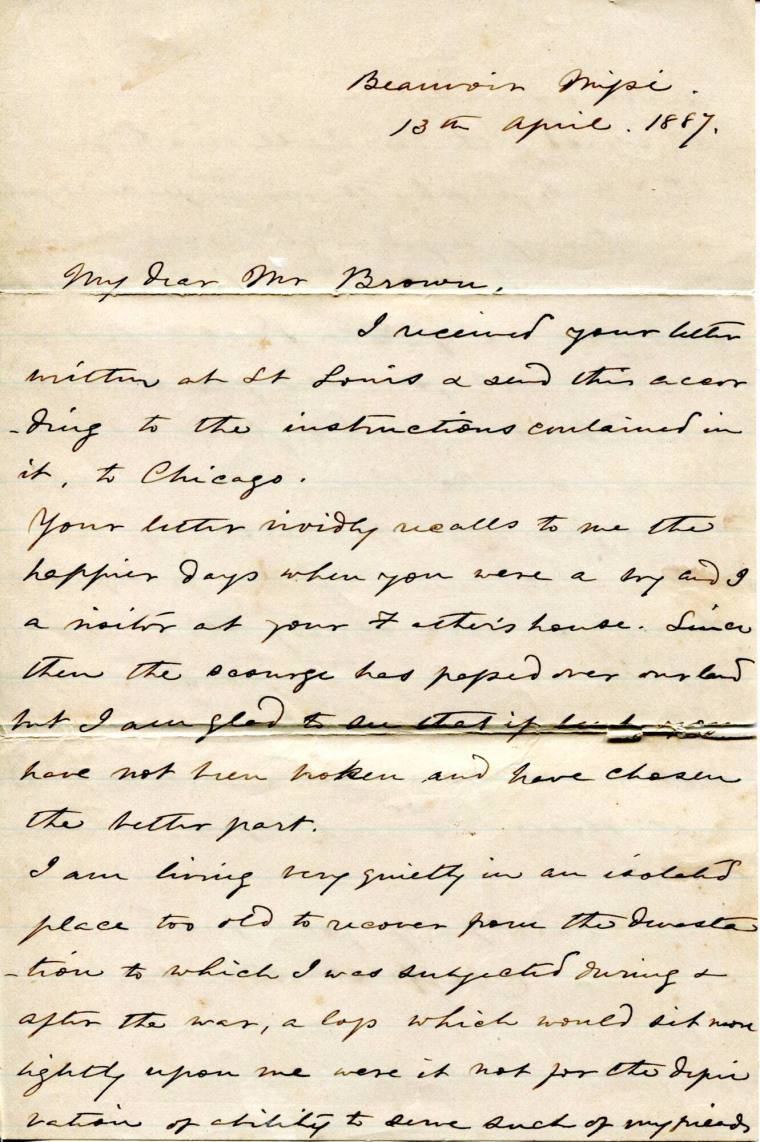 Beauvoir Missi.
13th April. 1887.
My dear Mr Brown,
I received your letter
written at St Louis & send this accor
-ding to the instructions contained in
it, to Chicago.
Your letter vividly recalls to me the
happier days when you were a boy and I
a visitor at your Father's house. Since
then the scourge has passed over our land
but I am glad to see that if bent you
have not been broken and have chosen
the better part.
I am living very quietly in an isolated
place too old to recover from the devasta
-tion to which I was subjected during &
after the war, a loss which would sit more
lightly upon me were it not for the depri
vation of ability to serve such of my friends